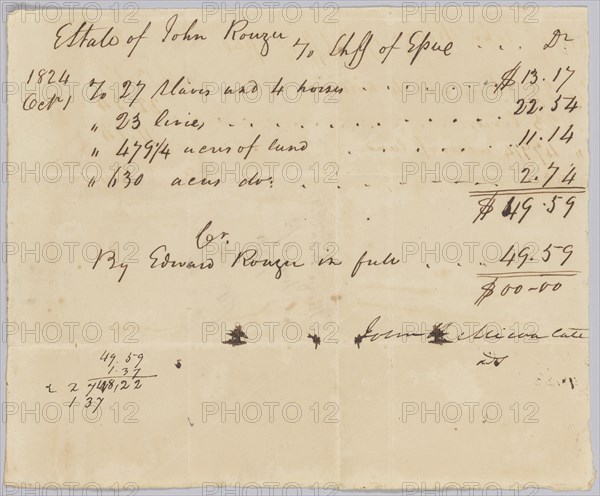 Estate of John Rouzee To Shff of Essex . . . Dr
1824
Octr 1 To 27 slaves and 4 horses . . . . . . $13.17
" 23 levies . . . . . . . . . . 22.54
" 479¼ acres of land . . . . . . . 11.14
" 630 acres do: . . . . 2.74
$49.59
Cr.
By Edward Rouzee in full . . . . 49.59
$00-00
John
late
49.59
1.37
48,22
1.37
PHOTO12